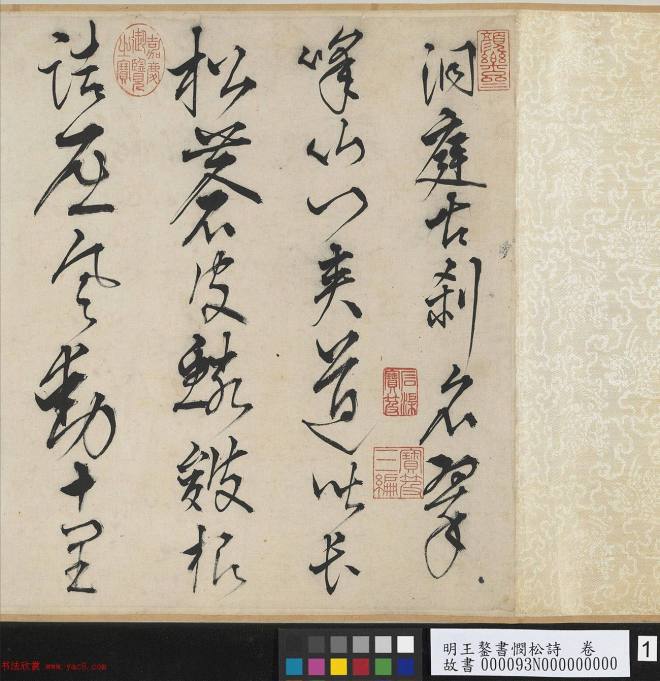 洞庭古刹名翠
峰山門夾道皆長
松蒼皮鱗皴根
詰屈風動十里
嘉慶
御覽
之寶
石渠
寶笈
寶笈
三編
明王鏊書憫松詩 卷
故書 000093N000000000
1
书法欣赏 www.yac8.com